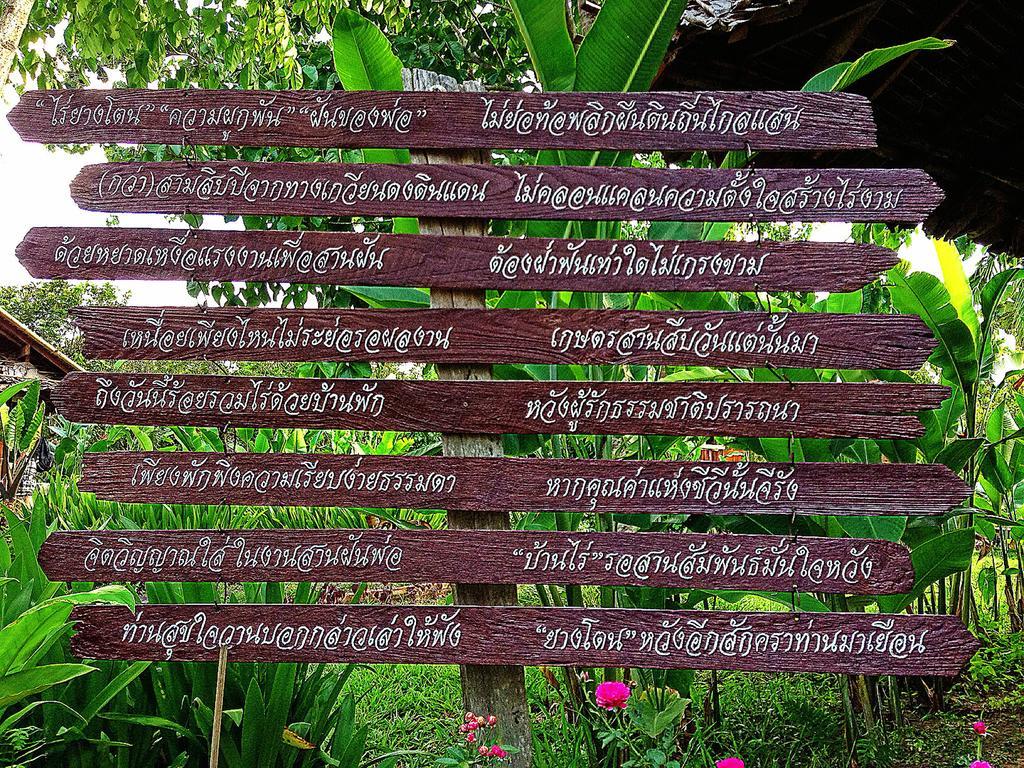 "ไร่ยางโตน" "ความผูกพัน" "ฝันของพ่อ" ไม่ย่อท้อพลิกผืนดินถิ่นไกลแสน
(กว่า) สามสิบปีจากทางเกวียนดงดินแดน ไม่คลอนแคลนความตั้งใจสร้างไร่งาม
ด้วยหยาดเหงื่อแรงงานเพื่อสานฝัน ต้องฝ่าฟันเท่าใดไม่เกรงขาม
เหนื่อยเพียงไหนไม่ระย่อรอผลงาน เกษตรสานสืบวันแต่นั้นมา
ถึงวันนี้ร้อยรวมไร่ด้วยบ้านพัก หวังผู้รักธรรมชาติปรารถนา
เพียงพักพิงความเรียบง่ายธรรมดา หากคุณค่าแห่งชีวีนั้นจีรัง
จิตวิญญาณใส่ในงานสานฝันพ่อ "บ้านไร่" รอสานสัมพันธ์มั่นใจหวัง
ท่านสุขใจวานบอกกล่าวเล่าให้ฟัง "ยางโตน" หวังอีกสักคราท่านมาเยือน